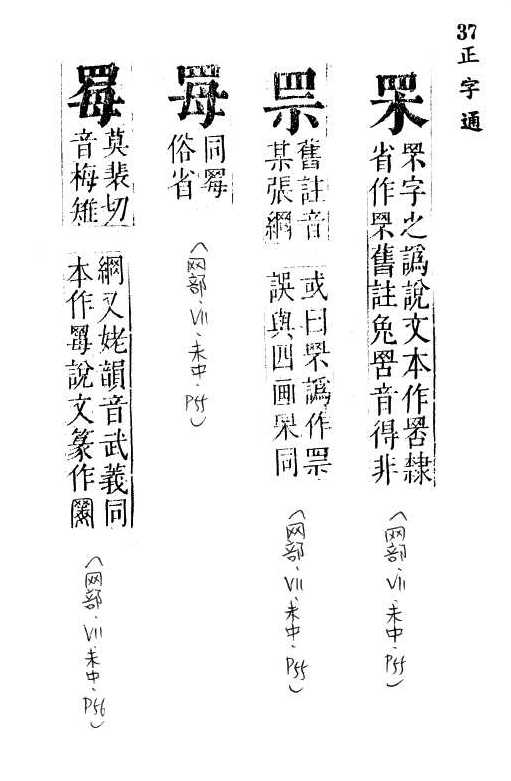 37 正字通
罘字之譌說文本作隸
省作罘舊註兔罟音得非
(网部·VII·未中·P55)
舊註音
某張網
或曰罘譌作
誤與四画罘同
(网部·VII·未中·P55)
同䍙
俗省
(网部·VII·未中·P55)
莫裴切
音梅雉
網又姥韻音武義同
本作䍙說文篆作
(网部·VII·未中·P56)